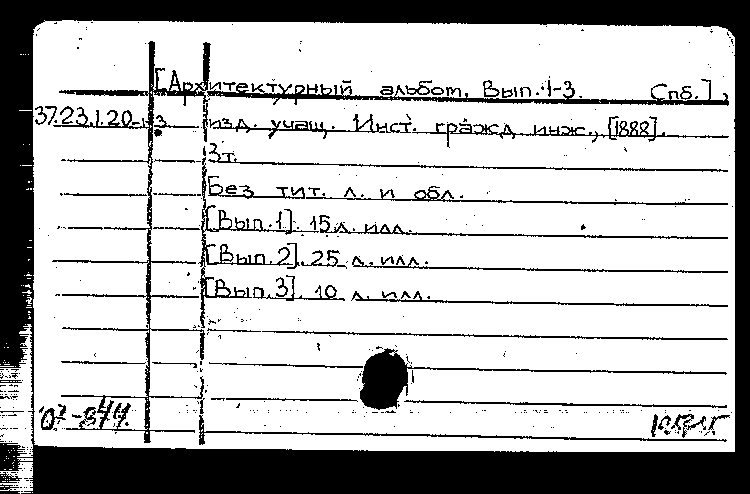 [Архитектурный альбом, Вып. 1-3. Спб.],
37.23.1.20-
изд. учащ. Инст. гражд инж., [1888].
3т.
Без тит. л. и обл.
[Вып. 1]. 15 л. илл.
[Вып. 2]. 25 л. илл.
[Вып. 3]. 10 л. илл.
07-844.